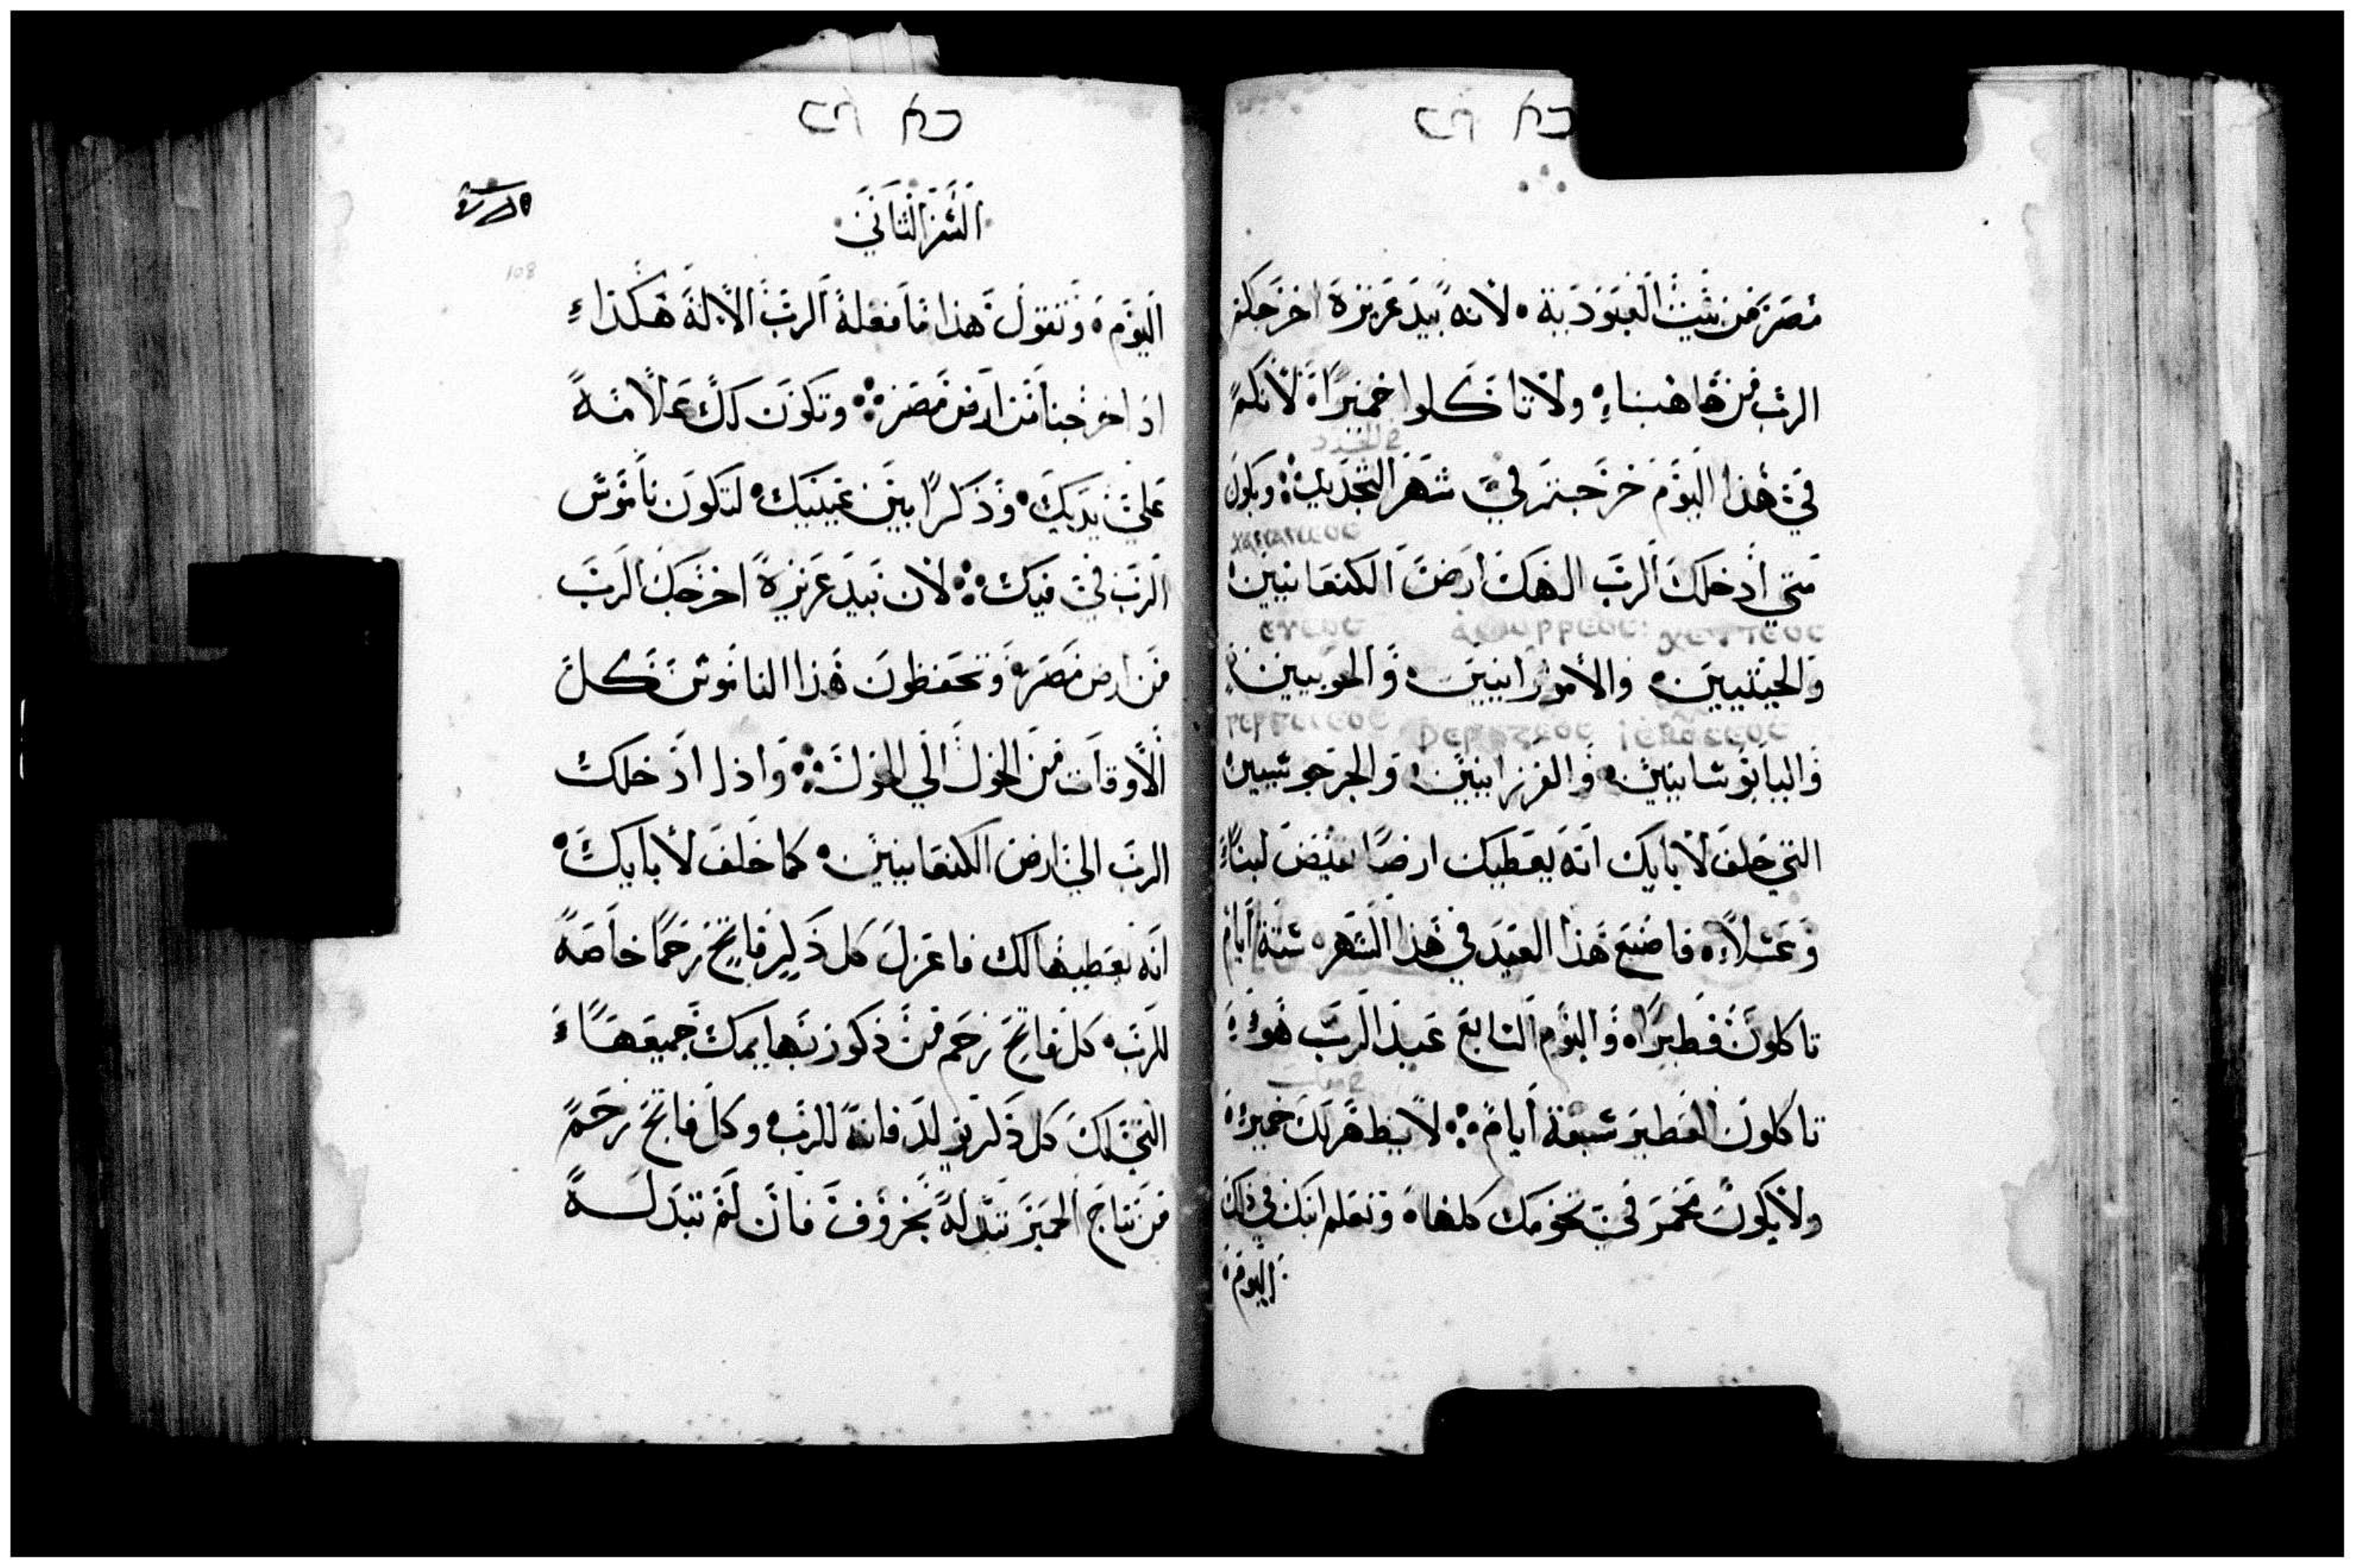 مصر من بيت العبودية لانه بيد عزيزة اخرجكم
الرب من هاهنا ولا تاكلوا خميرا لانكم
في هذا اليوم خرجتم في شهر الجديد ويكون
متي ادخلك الرب الهك ارض الكنعانيين
والحيثيين والامورانيين والحويين
واليابوسانيين والفرزانيين والجرجوسيين
التي حلف لابايك انه يعطيك ارضا تفيض لبنا
وعسلا فاصنع هذا العيد في هذا الشهر ستة ايام
تاكلون فطيرا واليوم السابع عيد الرب هو
تاكلون الفطير سبعة ايام لا يظهر لك خمير
ولا يكون مخمر في تخومك كلها وتعلم ابنك في ذلك
اليوم
السفر الثاني
108
اليوم وتقول هذا ما فعله الرب الاله هكذا
اذ اخرجنا من ارض مصر وتكون لك علامة
علي يديك وذكرا بين عينيك لتكون ناموس
الرب في فيك لان بيد عزيزة اخرجك الرب
من ارض مصر وتحفظون هذا الناموس كل
الاوقات من الحول الي الحول واذا ادخلك
الرب الي ارض الكنعانيين كما حلف لابايك
انه يعطيها لك فاعزل كل ذكر فاتح رحما خاصة
للرب كل فاتح رحم من ذكور بهايمك جميعها
التي لك كل ذكر يولد فانه للرب وكل فاتح رحم
من نتاج الحمير تبدله بخروف فان لم تبدله